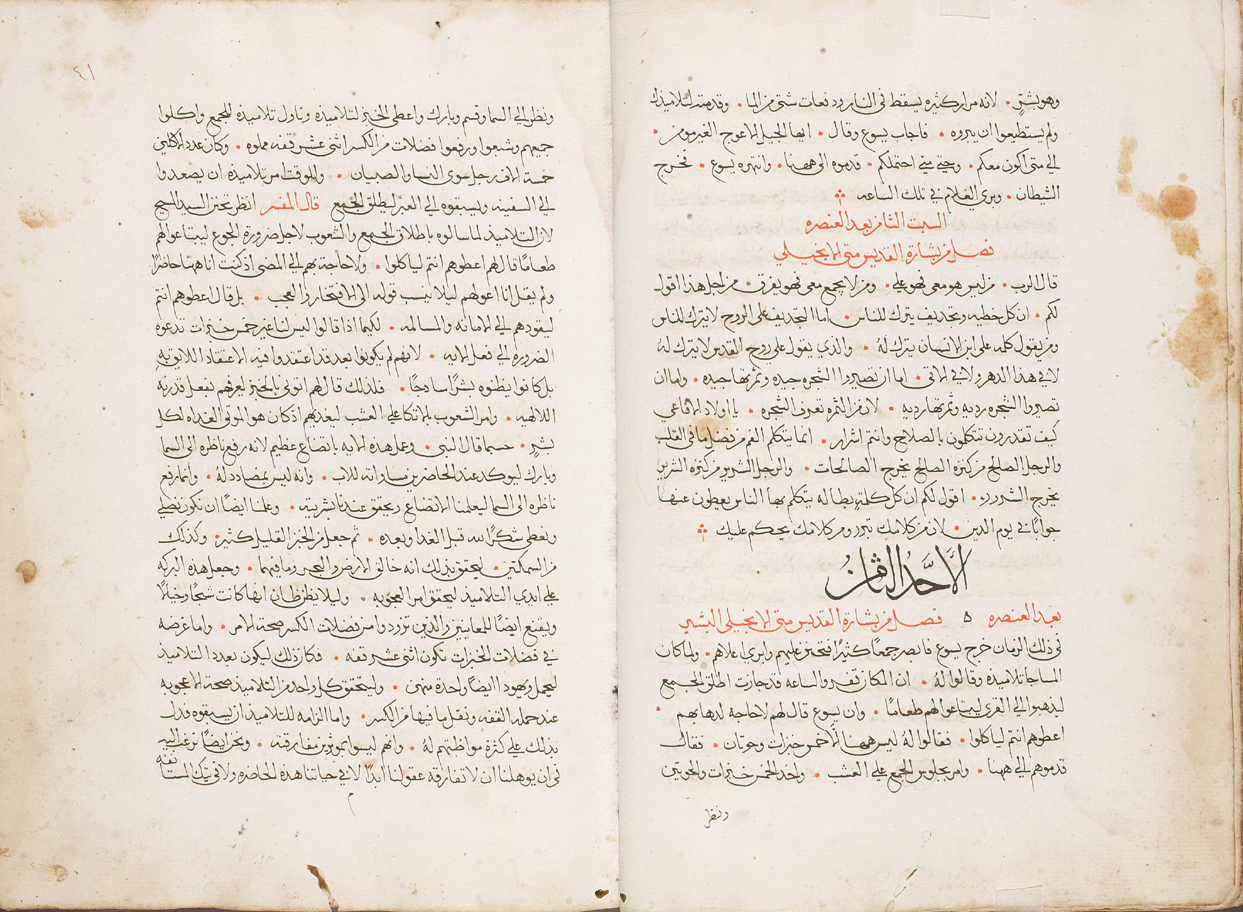 وهو بشتر • لانه مرار كثيره يسقط في النار ودفعات شتى في الما • وقدمته لتلاميذك
ولم يستطيعوا ان يبروه • فاجاب يسوع وقال • ايها الجيل الاعوج الغير مومن •
الي متى اكون معكم • وحتى متى احتملكم • قدموه الى ههنا • وانتهره يسوع • فخرج
الشيطان • وبري الغلام في تلك الساعه
السبت الثامن بعد العنصره
فصل من بشارة القديس متى الانجيلي
قال الرب • من ليس هو معي فهو علي • ومن لا يجمع معي فهو يفرق • من اجل هذا اقول
لكم • ان كل خطيه وتجديف يترك للناس • اما التجديف على الروح لا يترك للناس
ومن يقول كلمه على ابن الانسان يترك لهُ • والذي يقول على روح القدس لا يترك لهُ
لا في هذا الدهر ولا في الاتي • اما ان تصيروا الشجره جيده وثمرتها جيده • واما ان
تصيروا الشجره رديه وثمرتها رديه • لان من الثمره تعرف الشجره • يا اولاد الافاعي
كيف تقدرون تتكلمون بالصلاح وانتم اشرار • انما يتكلم الفم من فضل ما في القلب
والرجل الصالح من كنزه الصالح يخرج الصالحات • والرجل الشرير من كنزه الشرير
يخرج الشرور • اقول لكم ان كل كلمة بطاله يتكلم بها الناس يعطون عنها
جوابًا في يوم الدين • لان من كلامك تبرر ومن كلامك يحكم عليك
الاَحَّد الثامنُ
بعد العنصره ۵ فصل من بشارة القديس متى الانجيلي البشير
في ذلك الزمان خرج يسوع فابصر جمعا كثيرا فتحنن عليهم وابري اعلاهم • ولما كان
المسا جا تلاميذه وقالوا لهُ • ان المكان قفر والساعه قد جازت اطلق الجمع
ليذهبوا الي القري ليبتاعوا لهم طعامًا • وان يسوع قال لهم لا حاجه لذهابهم •
اعطوهم انتم لياكلوا • فقالوا لهُ ليس ههنا الّا خمس خبزات وحوتان • فقال
قدموهم الي ههنا • وامر بجلوس الجمع على العشب • واخذ الخمس خبزات والحوتين
ونظر
٤١
ونظر الي السما وقسم وبارك واعطى الخبز لتلاميذه وناول تلاميذه للجمع واكلوا
جميعهم وشبعوا ورفعوا فضلات من الكسر اثنى عشر قفه مملوه • وكان عدد الاكلين
خمسة الاف رجل سوى النسا والصبيان • وللوقت امر تلاميذه ان يصعدوا
الي السفينه ويسبقوه الي العبر ليطلق الجمع قال المفسر انظر تحنن السيد المسيح
لان التلاميذ لما سالوه باطلاق الجمع والشعوب لاجل ضرورة الجوع ليبتاعوا لهم
طعامًا قال لهم اعطوهم انتم لياكلوا • ولا حاجة بهم الي المضي اذ كنت انا ههنا حاضرًا
ولم يقل انا اعولهم ليلا ينسب قوله الى الافتخار والعجب • بل قال اعطوهم انتم
ليقودهم الي الامانه والمسالمه • لكيما اذا قالوا ليس لنا غير خمس خبزات تدعوه
الضروره الي فعل الايه • لانهم لم يكونوا بعد قد اعتقدوا فيه الاعتقاد اللايق به
بل كانوا يظنوه بشرًا ساذجًا • فلذلك قال لهم اتوني بالخبز ليعرفهم بفعل قدرته
اللاهيه • وامر الشعوب بالاتكا على العشب ليعدهم اذ كان هو المولي الغداه لكل
بشرٍ • حسبما قال النبي • وعمل هذه الايه باتضاع عظيم لانه رفع ناظره الى السما
وبارك ليوكد عند الحاضرين مساواته للاب • وانه ليس بمضاد لهُ • وانما رفع
ناظره الي السما ليعلمنا الاتضاع ويحقق عندنا بشريته • وعلمنا ايضًا ان نكون نصلي
ونعطي شكرًا لله قبل الغدا وبعده • ثم جعل من الخبز القليل كثير • وكذلك
من السمكتين • ليحقق بذلك انه خالق الارض والبحر وما فيهما • وجعل هذه البركه
على ايدي التلاميذ ليحقق امر العجوبه • وليلا يظن ظان انها كانت شبحًا وخيلًا
ويقنع ايضًا للمعاينين والذين تزودوا من فضلات الكسر صحة الامر • واما غرضه
في فضلات الخبزات تكون اثنى عشر قفه • فكان ذلك ليكون بعدد التلاميذ
ليحمل ويهودا ايضًا واحدة منهن • وليتحقق كل واحد من التلاميذ صحة الاعجوبه
عند حمله القفه ونقل ما فيها من الكسر • واما الزامه للتلاميذ ان يسبقوه فدل
بذلك على كثرة مواظبتهم لهُ • وانهم ليسوا يوثرون مفارقته • ونحن ايضًا نرغب اليه
في ان يوهلنا ان لا تفارقه عقولنا ابدًا لا في حياتنا هذه الحاضره ولا في تلك المستانفه